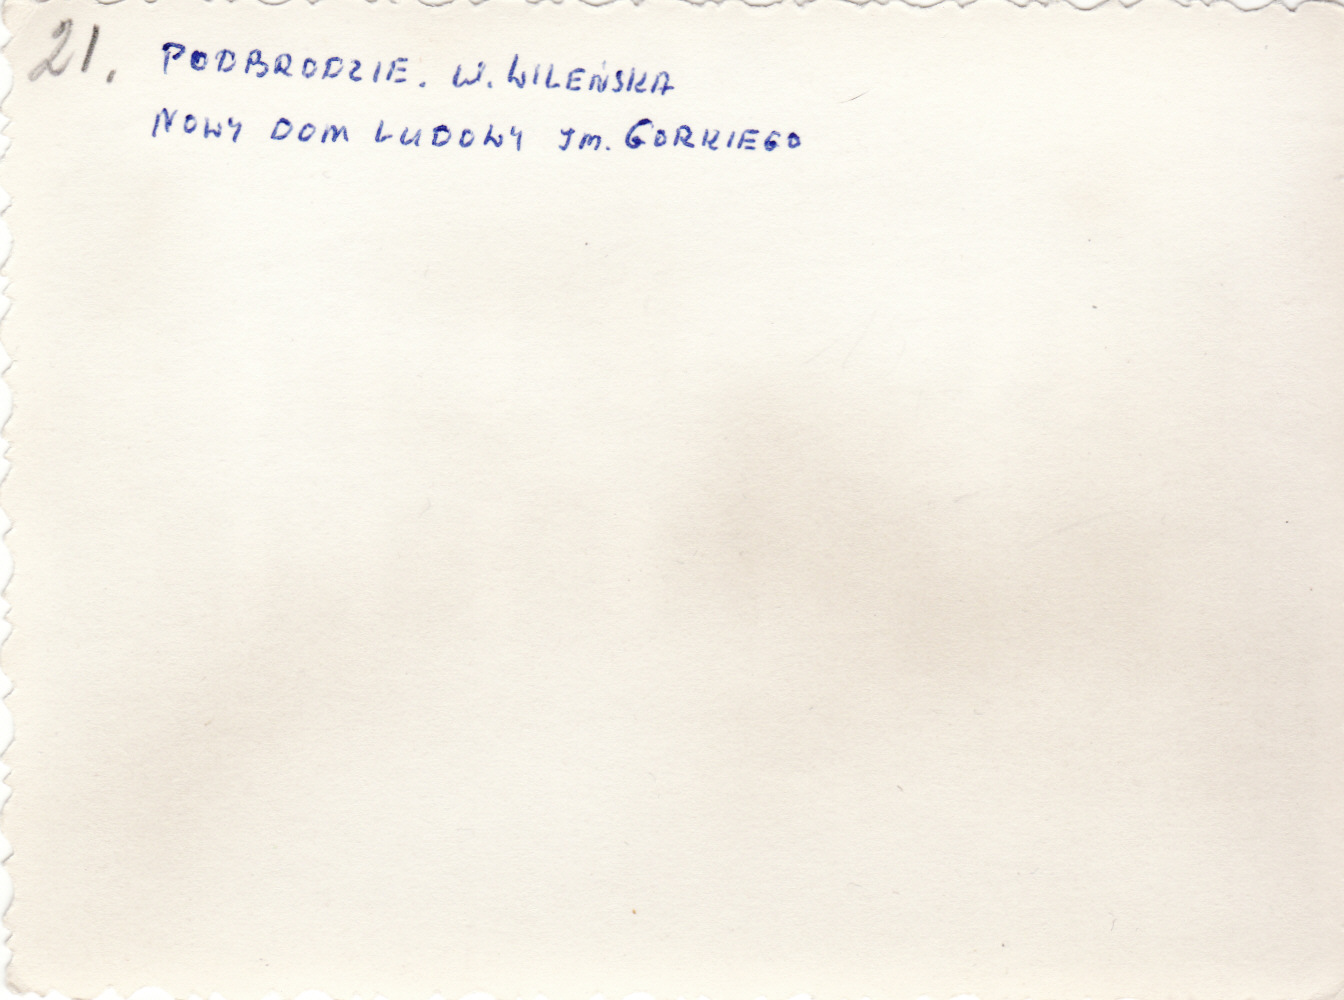 21. PODBRODZIE. W. WILEŃSKA
NOWY DOM LUDOWY IM. GORKIEGO